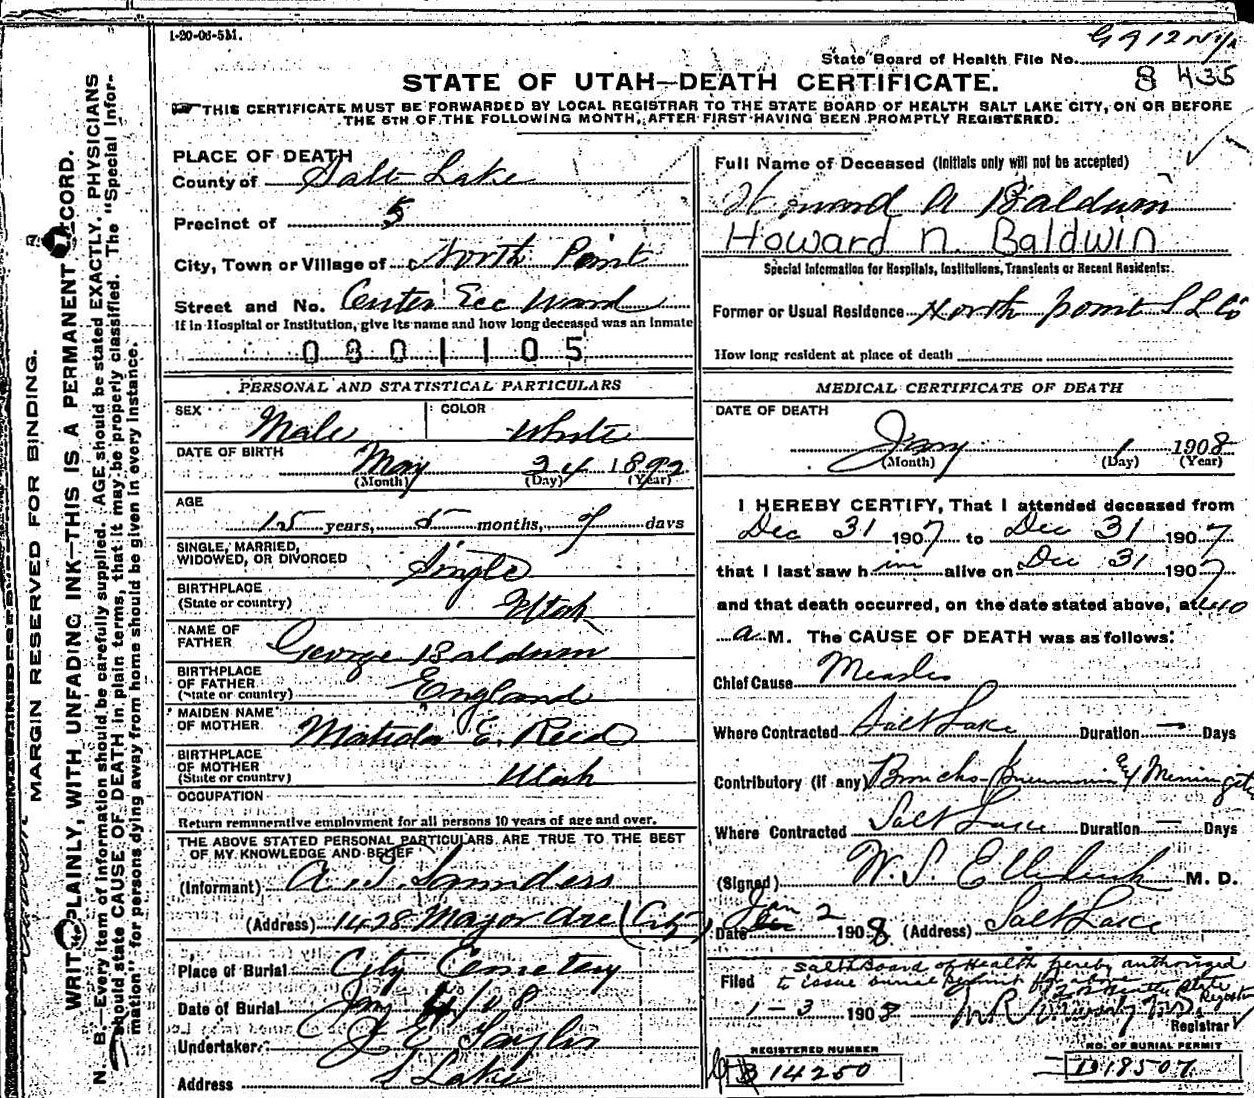 1-20-06-5M.
G912N
State Board of Health File No.
8 435
STATE OF UTAH—DEATH CERTIFICATE.
THIS CERTIFICATE MUST BE FORWARDED BY LOCAL REGISTRAR TO THE STATE BOARD OF HEALTH SALT LAKE CITY, ON OR BEFORE
THE 5TH OF THE FOLLOWING MONTH, AFTER FIRST HAVING BEEN PROMPTLY REGISTERED.
PLACE OF DEATH
County of Salt Lake
Precinct of 5
City, Town or Village of North Point
Street and No. Center Ecc Ward
If in Hospital or Institution, give its name and how long deceased was an inmate
0801105
PERSONAL AND STATISTICAL PARTICULARS
SEX Male COLOR White
DATE OF BIRTH May 24 1892
(Month) (Day) (Year)
AGE
15 years, 5 months, 7 days
SINGLE, MARRIED,
WIDOWED, OR DIVORCED Single
BIRTHPLACE
(State or country) Utah
NAME OF
FATHER George Baldwin
BIRTHPLACE
OF FATHER
(State or country) England
MAIDEN NAME
OF MOTHER Matilda E. Reid
BIRTHPLACE
OF MOTHER
(State or country) Utah
OCCUPATION
Return remunerative employment for all persons 10 years of age and over.
THE ABOVE STATED PERSONAL PARTICULARS ARE TRUE TO THE BEST
OF MY KNOWLEDGE AND BELIEF
(Informant) A. G. Saunders
(Address) 1428 Major Ave (City)
Place of Burial City Cemetery
Date of Burial Jany 4/08
Undertaker J E Taylor
Address S Lake
Full Name of Deceased (Initials only will not be accepted)
Howard A Baldwin
Howard N. Baldwin
Special Information for Hospitals, Institutions, Transients or Recent Residents:
Former or Usual Residence North point S L Co
How long resident at place of death
MEDICAL CERTIFICATE OF DEATH
DATE OF DEATH
Jany 1 1908
(Month) (Day) (Year)
I HEREBY CERTIFY, That I attended deceased from
Dec 31 1907 to Dec 31 1907
that I last saw him alive on Dec 31 1907
and that death occurred, on the date stated above, at 40
a M. The CAUSE OF DEATH was as follows:
Chief Cause Measles
Where Contracted Salt Lake Duration — Days
Contributory (if any) Broncho-Pneumonia & Meningitis
Where Contracted Salt Lake Duration — Days
(Signed) W. S. Ellerbeck M. D.
Date Jan 2 1908 (Address) Salt Lake
Salt Board of Health hereby authorized
Filed to issue burial permit
1-3 1908 State Registrar
Registrar
REGISTERED NUMBER
14250
NO. OF BURIAL PERMIT
D18507
MARGIN RESERVED FOR BINDING.
WRITE PLAINLY, WITH UNFADING INK—THIS IS A PERMANENT RECORD.
N. B.—Every item of information should be carefully supplied. AGE should be stated EXACTLY. PHYSICIANS
should state CAUSE OF DEATH in plain terms, that it may be properly classified. The "Special Infor-
mation" for persons dying away from home should be given in every instance.